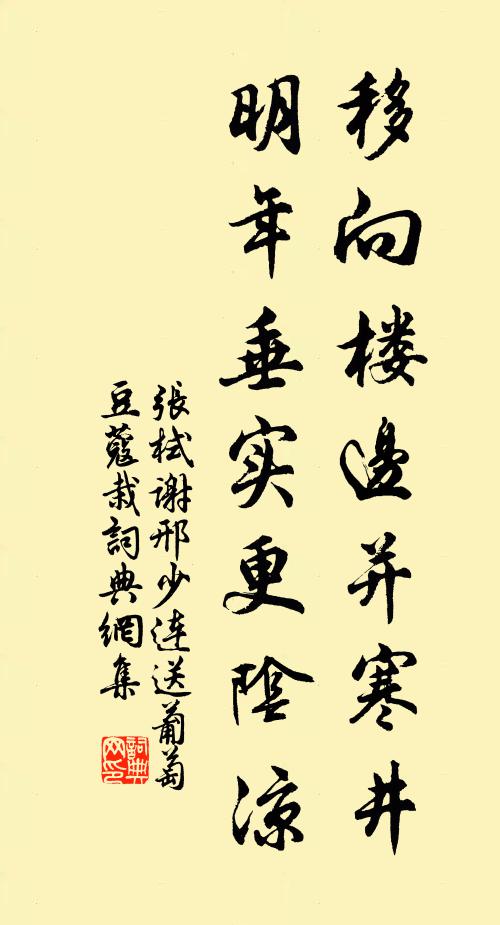 移向楼邊并寒井
明年垂实更陰凉
張栻谢邢少連送葡萄
豆蔻栽詞典網集
詞典网印